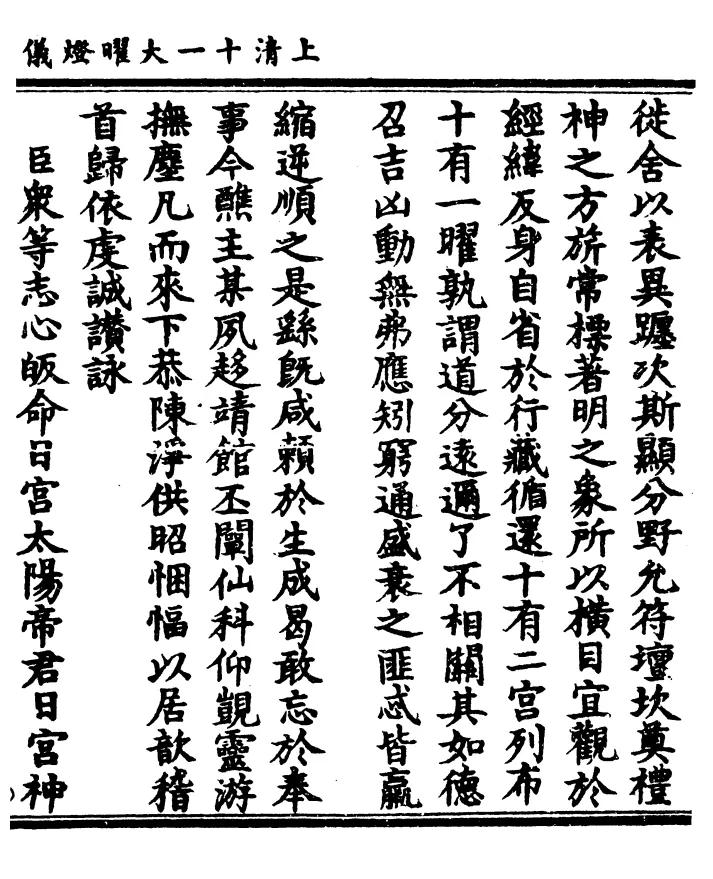 上清十一大曜燈儀
徙舍以表異躔次斯顯分野允符壇坎奠禮
神之方旂常標著明之象所以橫目宜觀於
經緯反身自省於行藏循還十有二宮列布
十有一曜孰謂道分遠邇了不相關其如德
召吉凶動無弗應矧窮通盛衰之匪忒皆贏
縮逆順之是繇旣咸賴於生成曷敢忘於奉
事今醮主某夙趍靖館丕闡仙科仰覬靈游
撫塵凡而來下恭陳淨供昭悃愊以居歆稽
首歸依虔誠讚詠
臣衆等志心皈命日宮太陽帝君日宮神